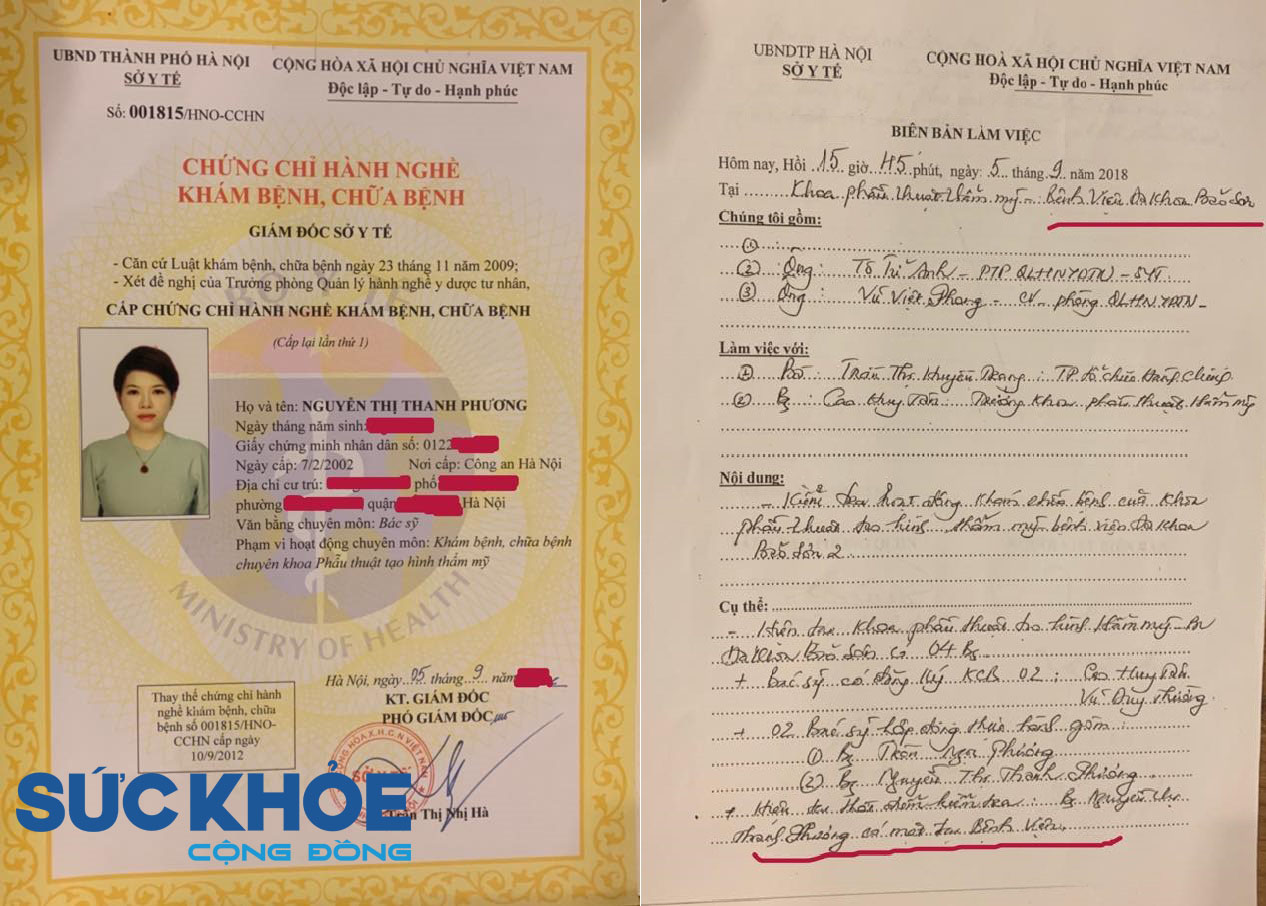 UBND THÀNH PHỐ HÀ NỘI
SỞ Y TẾ
CỘNG HÒA XÃ HỘI CHỦ NGHĨA VIỆT NAM
Độc lập - Tự do - Hạnh phúc
Số: 001815/HNO-CCHN
CHỨNG CHỈ HÀNH NGHỀ
KHÁM BỆNH, CHỮA BỆNH
GIÁM ĐỐC SỞ Y TẾ
- Căn cứ Luật khám bệnh, chữa bệnh ngày 23 tháng 11 năm 2009;
- Xét đề nghị của Trưởng phòng Quản lý hành nghề y dược tư nhân,
BỘ Y TẾ
CẤP CHỨNG CHỈ HÀNH NGHỀ KHÁM BỆNH, CHỮA BỆNH
(Cấp lại lần thứ 1)
Họ và tên: NGUYỄN THỊ THANH PHƯƠNG
Ngày tháng năm sinh:
Giấy chứng minh nhân dân số: 0122
Ngày cấp: 7/2/2002 Nơi cấp: Công an Hà Nội
Địa chỉ cư trú: phố
phường quận Hà Nội
Văn bằng chuyên môn: Bác sỹ
Phạm vi hoạt động chuyên môn: Khám bệnh, chữa bệnh
chuyên khoa Phẫu thuật tạo hình thẩm mỹ
MINISTRY OF HEALTH
Hà Nội, ngày 05 tháng 9 năm
KT. GIÁM ĐỐC
PHÓ GIÁM ĐỐC
Thay thế chứng chỉ hành
nghề khám bệnh, chữa
bệnh số 001815/HNO-
CCHN cấp ngày
10/9/2012
Trần Thị Nhị Hà
SỨC KHỎE
CỘNG ĐỒNG
UBNDTP HÀ NỘI
SỞ Y TẾ
CỘNG HOÀ XÃ HỘI CHỦ NGHĨA VIỆT NAM
Độc lập - Tự do - Hạnh phúc
BIÊN BẢN LÀM VIỆC
Hôm nay, Hồi 15 giờ 45 phút, ngày: 5 tháng 9 năm 2018
Tại Khoa phẫu thuật thẩm mỹ - Bệnh Viện Đa Khoa Bảo Sơn
Chúng tôi gồm:
(1)
(2) Ông: Tô Trí Anh - PTP QLHNYDTN - SYT
(3) Ông: Vũ Việt Phong - CV phòng QLHNYDTN -
Làm việc với:
(1) Bà: Trần Thị Khuyên Trang: TP. tổ chức
(2) Bs Cao Huy Tân: Trưởng Khoa phẫu thuật thẩm mỹ
Nội dung:
- Kiểm tra hoạt động khám chữa bệnh của Khoa
phẫu thuật tạo hình thẩm mỹ bệnh viện Đa Khoa
Bảo Sơn 2
Cụ thể:
- Hiện tại Khoa phẫu thuật tạo hình thẩm mỹ - BV
Đa Khoa Bảo Sơn có 04 Bs
+ Bác sỹ có đăng ký KCB 02: Cao Huy Tân
Vũ Duy Thường
+ 02 Bác sỹ hợp đồng thực hành gồm:
(1) Bs Trần Nga Phương
(2) Bs Nguyễn Thị Thanh Phương
+ Hiện tại thời điểm kiểm tra: Bs Nguyễn Thị
Thanh Phương có mặt tại Bệnh Viện.